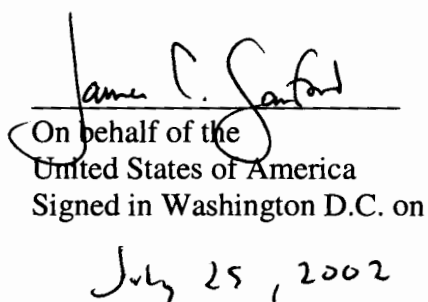 James C. Sanford
On behalf of the
United States of America
Signed in Washington D.C. on
July 25, 2002